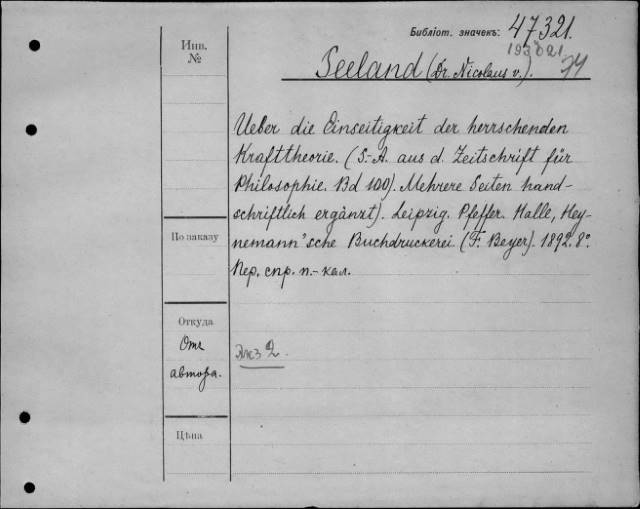 Библіот. значекъ: 47321.
193021
Инв.
№
Seeland (Dr. Nicolaus v.).
Ueber die Einseitigkeit der herrschenden
Krafttheorie. (S.-A. aus d. Zeitschrift für
Philosophie. Bd 100). Mehrere Seiten hand-
schriftlich ergänzt). Leipzig. Pfeffer. Halle, Hey-
nemann'sche Buchdruckerei (F. Beyer). 1892. 8°.
Пер. спр. п.-кал.
По заказу
Откуда
Отъ
автора.
экз 2.
Цѣна